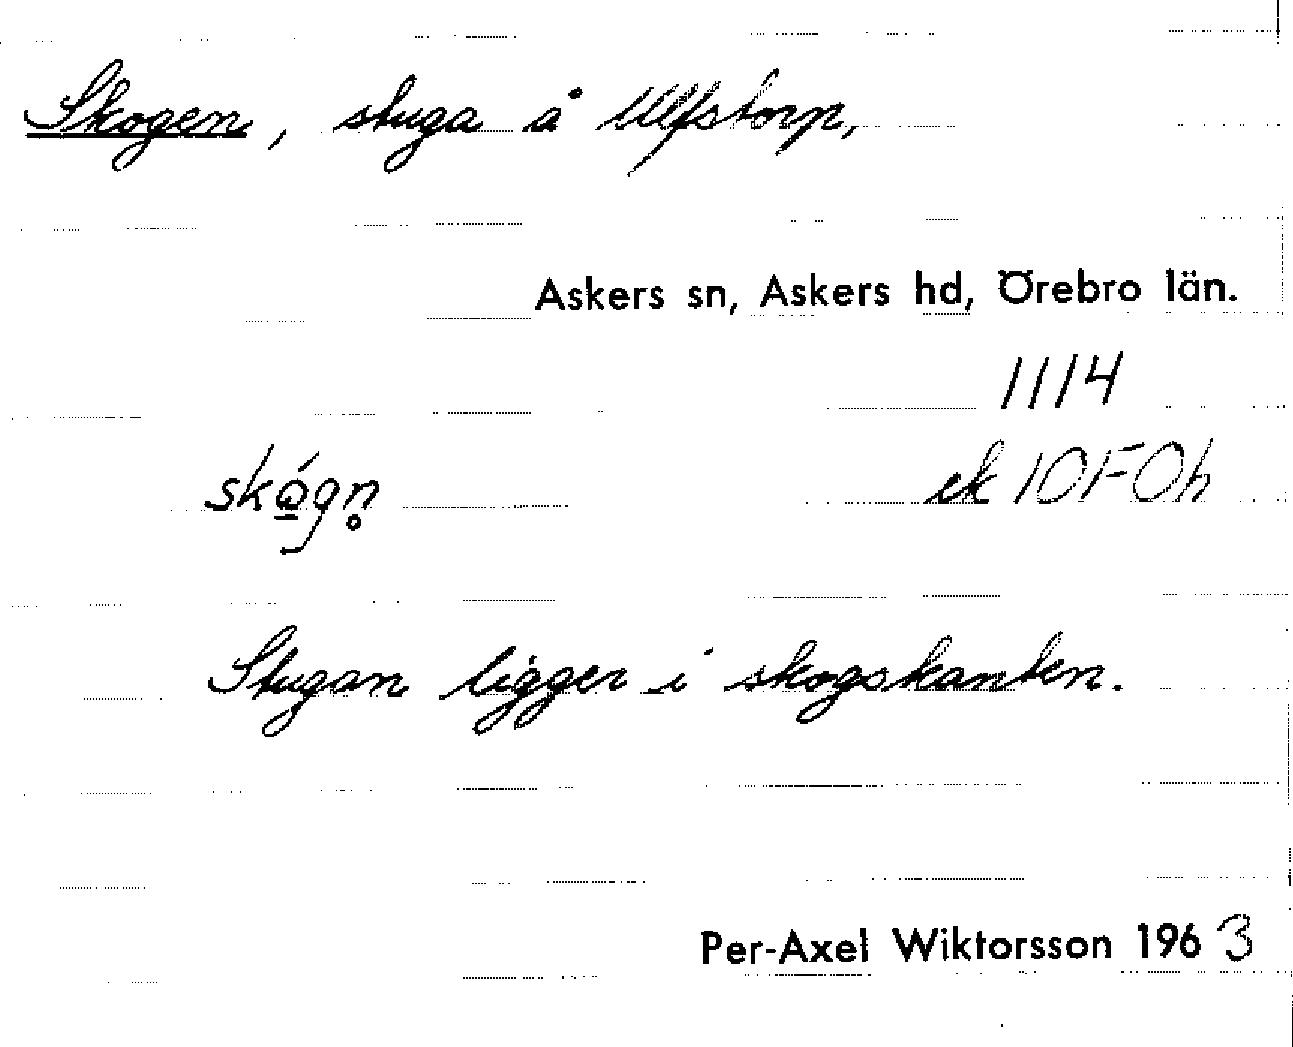 Skogen, stuga å Ulfstorp,
Askers sn, Askers hd, Örebro län.
1114
skó̱gn̥
ek 10F0h
Stugan ligger i skogskanten.
Per-Axel Wiktorsson 1963